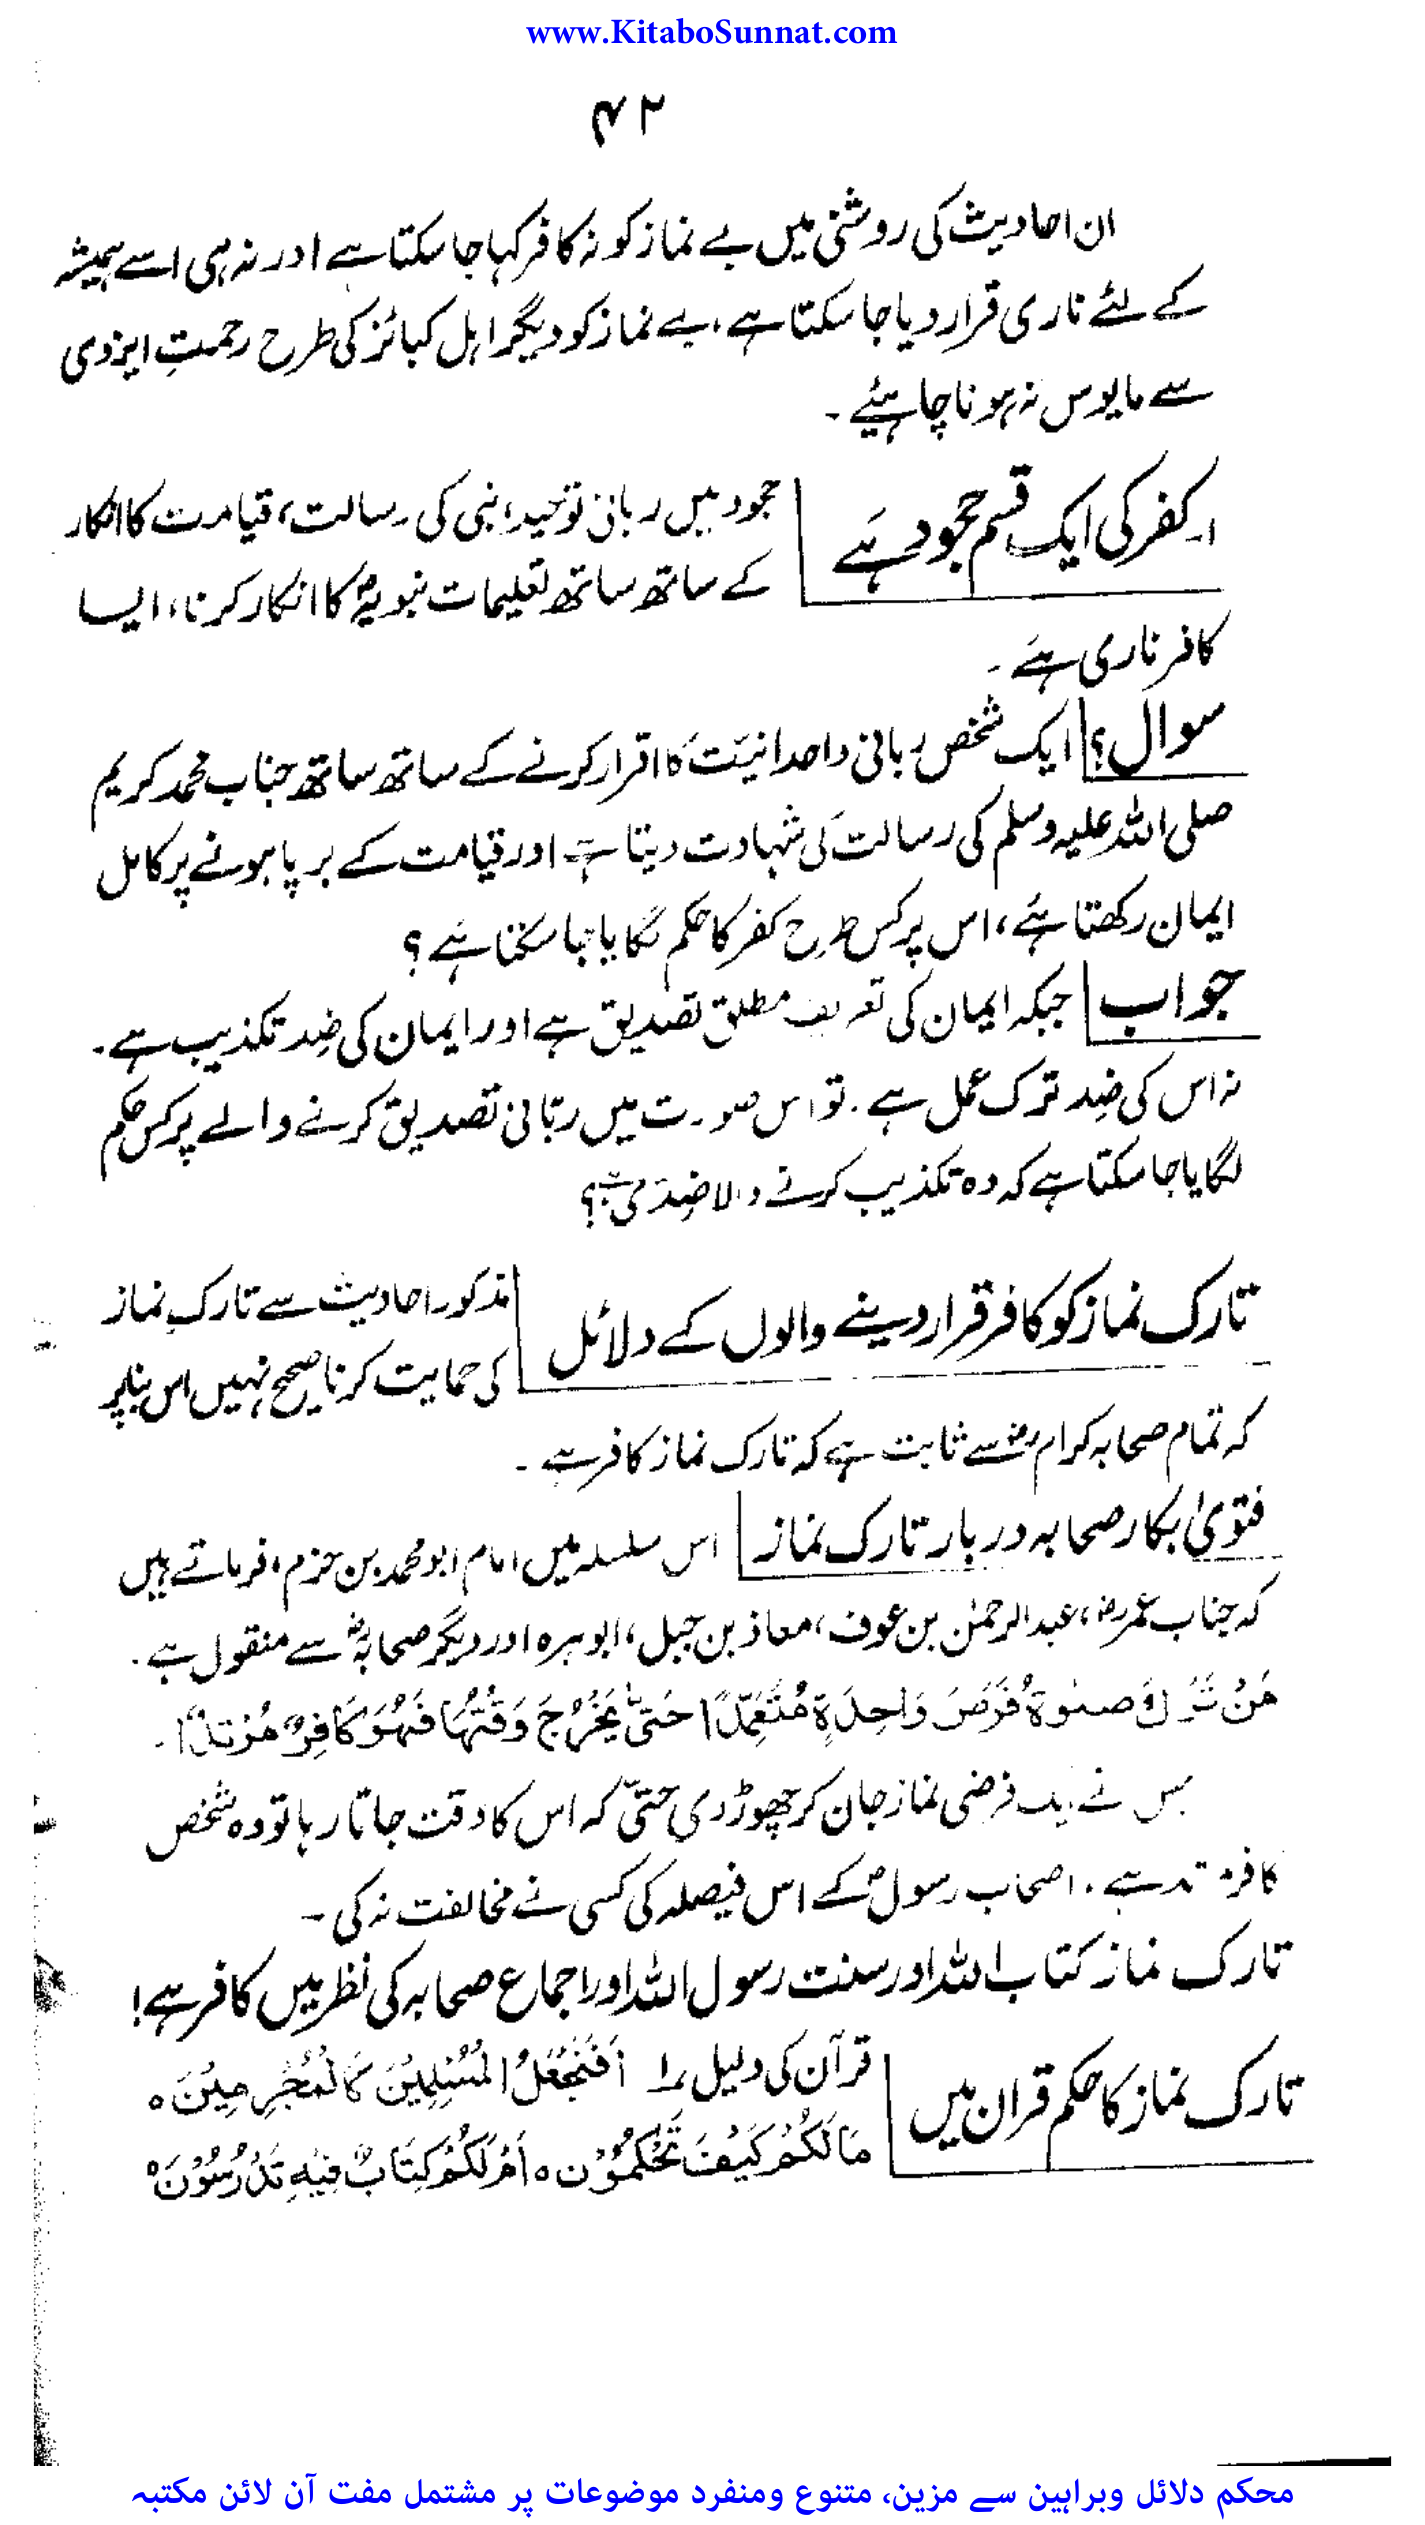 www.KitaboSunnat.com
۴۲
ان احادیث کی روشنی میں بے نماز کو نہ کافر کہا جا سکتا ہے اور نہ ہی اسے ہمیشہ
کے لئے ناری قرار دیا جا سکتا ہے، بے نماز کو دیگر اہل کبائز کی طرح رحمتِ ایزدی
سے مایوس نہ ہونا چاہیئے۔
۱۔ کفر کی ایک قسم جحود ہے
جحود میں ربانی توحید، نبی کی رسالت، قیامت کا انکار
کے ساتھ ساتھ تعلیمات نبویہؐ کا انکار کرنا، ایسا
کافر ناری ہے۔
سوال؟ ایک شخص ربانی واحدانیت کا اقرار کرنے کے ساتھ ساتھ جناب محمد کریم
صلی اللہ علیہ وسلم کی رسالت کی شہادت دیتا ہے اور قیامت کے برپا ہونے پر کامل
ایمان رکھتا ہے، اس پر کس طرح کفر کا حکم لگایا جا سکتا ہے؟
جواب جبکہ ایمان کی تعریف مطلق تصدیق ہے اور ایمان کی ضد تکذیب ہے۔
نہ اس کی ضد ترک عمل ہے۔ تو اس صورت میں ربّانی تصدیق کرنے والے پر کس حکم
لگایا جا سکتا ہے کہ وہ تکذیب کرنے والا ضدی ہے؟
تارک نماز کو کافر قرار دینے والوں کے دلائل
مذکور احادیث سے تارکِ نماز
کی حمایت کرنا صحیح نہیں اس بنا پر
کہ تمام صحابہ کرامؓ سے ثابت ہے کہ تارک نماز کافر ہے۔
فتویٰ بکار صحابہ دربار تارک نماز اس سلسلہ میں امام ابو محمد بن حزم، فرماتے ہیں
کہ جناب عمرؓ، عبدالرحمٰن بن عوف، معاذ بن جبل، ابوہرہ اور دیگر صحابہؓ سے منقول ہے۔
مَنْ تَرَكَ صَلٰوةُ فَرَضَ وَاحِدَةٍ مُتَعَمِّدًا حَتّٰى يَخْرُجَ وَقْتُهَا فَهُوَ كَافِرٌ مُرْتَدٌّا۔
جس نے ایک فرضی نماز جان کر چھوڑ دی حتیّٰ کہ اس کا وقت جاتا رہا تو وہ شخص
کافر مرتد ہے۔ اصحاب رسولؐ کے اس فیصلہ کی کسی نے مخالفت نہ کی۔
تارک نماز کتاب اللہ اور سنت رسول اللہ اور اجماع صحابہ کی نظر میں کافر ہے!
تارک نماز کا حکم قران میں
قرآن کی دلیل ۱؎ أَفَنَجْعَلُ الْمُسْلِمِيْنَ كَالْمُجْرِمِيْنَ ه
مَا لَكُمْ كَيْفَ تَحْكُمُوْن ه أَمْ لَكُمْ كِتَابٌ فِيْهِ تَدْرُسُوْنَ ه
محکم دلائل وبراہین سے مزین، متنوع ومنفرد موضوعات پر مشتمل مفت آن لائن مکتبہ